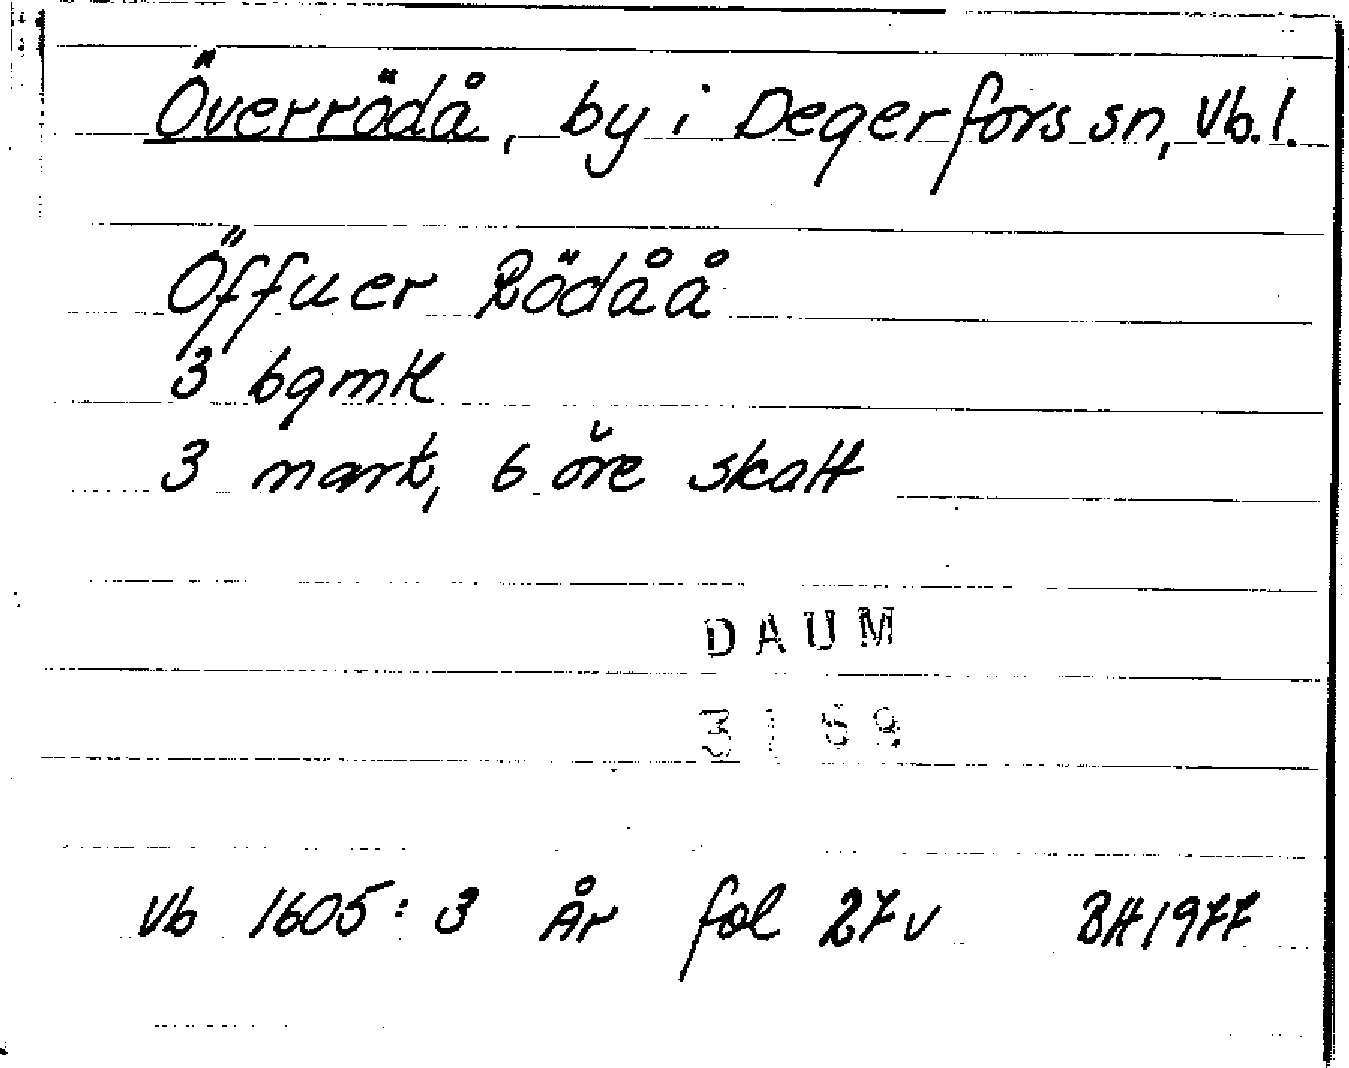 Överrödå, by i Degerfors sn, Vb.l.
Öffuer Rödåå
3 bgmtl
3 mark, 6 öre skatt
DAUM
3159
Vb 1605:3 År fol 27v BH1977